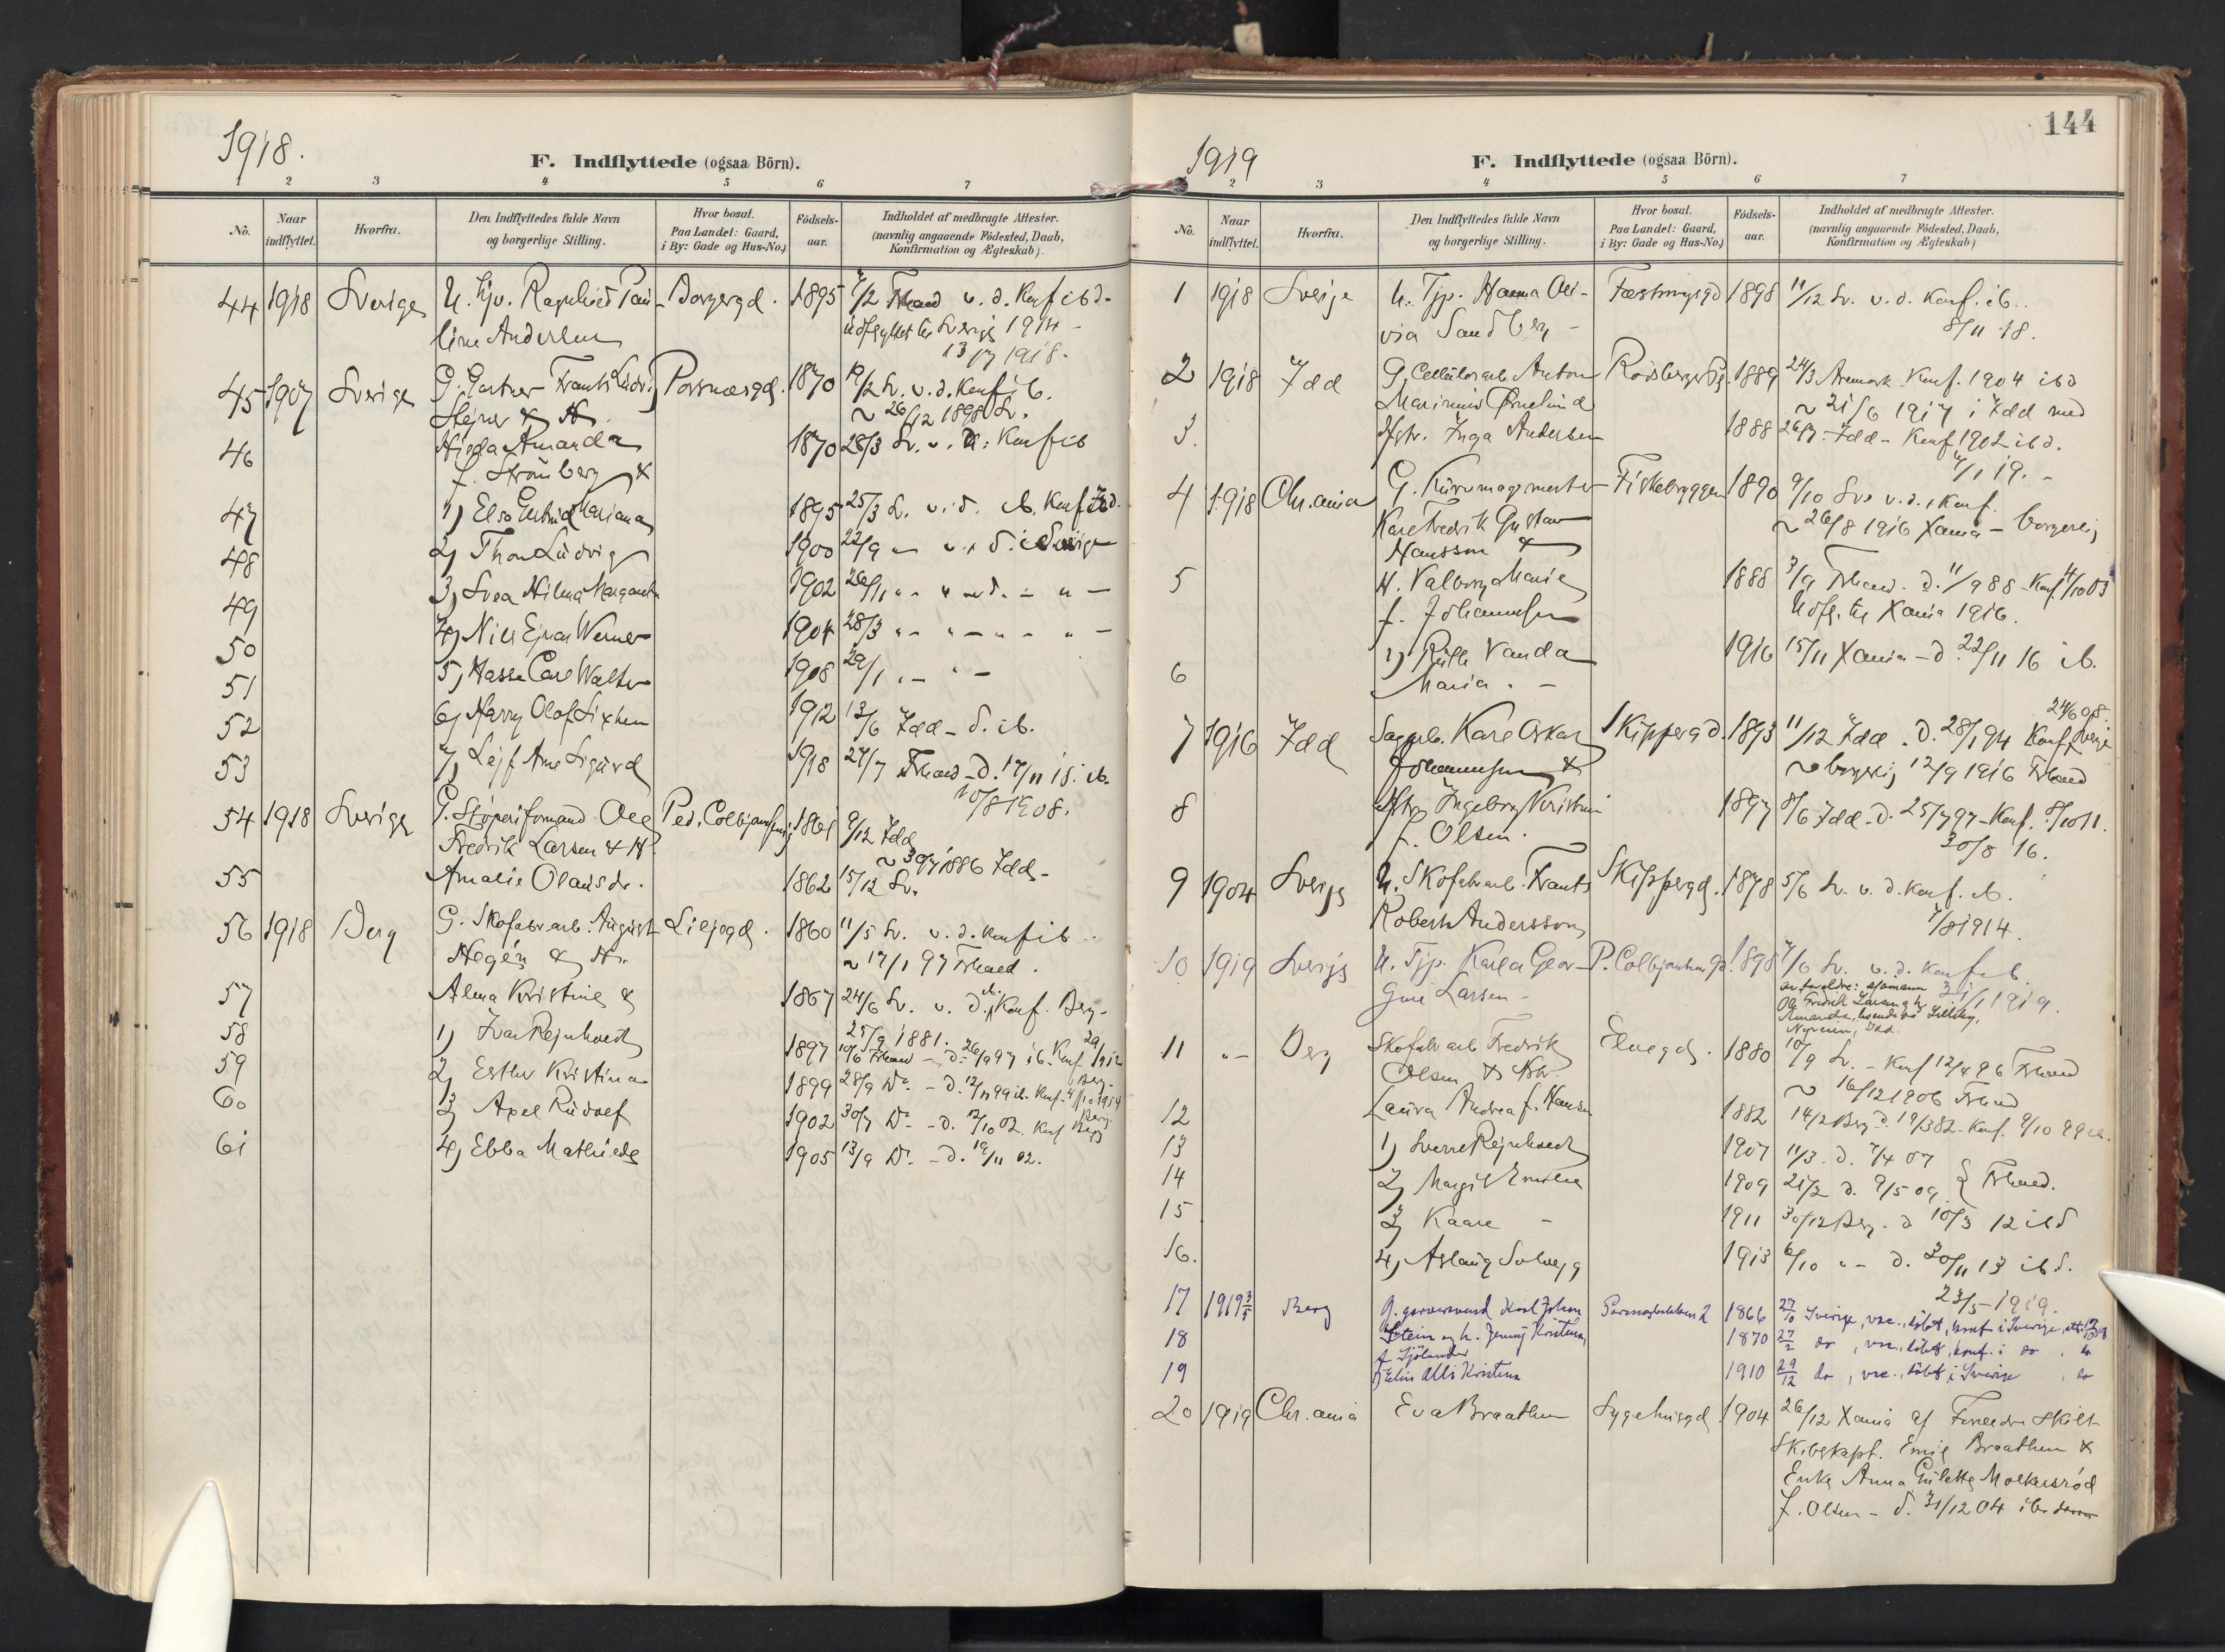 1918.
F. Indflyttede (ogsaa Börn).
1 2 3 4 5 6 7
No. Naar indflyttet. Hvorfra. Den Indflyttedes fulde Navn og borgerlige Stilling. Hvor bosat. Paa Landet: Gaard, i By: Gade og Hus-No.) Födsels-aar. Indholdet af medbragte Attester. (navnlig angaaende Födested, Daab, Konfirmation og Ægteskab).
44 1918 Sverige U. Tjv. Ragnhild Pau- Borgergd. 1895 Frhald v. d. Konf ibd.
line Andersen udflyttet til Sverige 1914 -
13/7 1918.
45 1907 Sverige G. Gartner Frants Ludvig 1870 19/2 Sv. v. d. Konf ib.
Stejner & H. ~ 26/12 1898 Sv.
46 Hilda Amanda 1870 28/3 Sv. v. d: Konf ib
f. Strömberg &
47 1) Elsa Gertrud Mariana 1895 25/3 Sv. v. d. ib. Konf Idd.
48 2) Thor Ludvig 1900 22/9 " v. d. i Sverige
49 3) Svea Hilma Margareta 1902 26/11 " " d. " " -
50 4) Nils Ejnar Werner 1904 28/3 " - " - " - " -
51 5) Hasse Carl Walter 1908 29/1 " - " -
52 6) Harry Olof Sixten 1912 13/6 Idd - d. ib.
53 7) Lejf Arne Sigurd 1918 27/7 Frhald - d. 17/11 18. ib.
10/8 1908.
54 1918 Sverige G. Støperiformand Ole Ped. Colbjørnsensg 1861 9/12 Idd
Fredrik Larsen & H. ~ 30/7 1886 Idd -
55 Amalie Olausdr. 1862 15/12 Sv.
56 1918 Berg G. Skofabrarb. August Liljegd. 1860 11/5 Sv. v. d. konf ib.
Hegén & H. ~ 17/1 97 Frhald.
57 Alma Kristine & 1867 24/6 Sv. v. d. ib. Konf. Berg -
25/9 1881.
58 1) Ivar Rejnholdt 1897 10/6 Frhald - d. 26/9 97 ib. Konf 1912 Berg -
59 2) Esther Kristina 1899 28/9 Do. - d. 12/11 99 ib. Konf. 4/10 1914 Berg
60 3) Axel Rudolf 1902 30/7 Do. - d. 12/10 02. Konf Berg
61 4) Ebba Mathilde 1905 13/9 Do. - d. 19/11 02.
144
1919
F. Indflyttede (ogsaa Börn).
2 3 4 5 6 7
No. Naar indflyttet. Hvorfra. Den Indflyttedes fulde Navn og borgerlige Stilling. Hvor bosat. Paa Landet: Gaard, i By: Gade og Hus-No.) Födsels-aar. Indholdet af medbragte Attester. (navnlig angaaende Födested, Daab, Konfirmation og Ægteskab)
1 1918 Sverje U. Tjp. Hanna Oli- Fæstningsgd 1898 11/12 Sv. v. d. Konf. ib..
via Sandberg - 8/11 18.
2 1918 Idd G. Cellulosarb. Anton Rødsbergg. 1889 24/3 Aremark Konf. 1904 ibd
Marinius Ørnelund ~ 21/6 1917 i Idd med
3. Hstr. Inga Andersen 1888 26/7 Idd - Konf 1902 ibd.
4/1 19. -
4 1918 Chr.ania G. Kurvmagermester Fiskebryggen 1890 9/10 Sv. v. d., Konf.
Karl Fredrik Gustav ~ 26/8 1916 Xania - borgerlig
Hansson &
5 H. Valborg Marie 1888 3/9 Frhald. d. 11/9 88 - Konf 4/10 03
f. Johannesen Udfl. til Xania 1916.
6 1) Ruth Vanda 1916 15/11 Xania - d. 22/11 16 ib.
Maria. -
24/6 08.
7 1916 Idd Sagarb. Karl Oskar Skippergd. 1893 11/12 Idd. d. 28/1 94 Konf. Sverje
Johannesen & ~ borgerlig 12/9 1916 Frhald
8 Hstr. Ingeborg Kristine 1897 8/6 Idd - d. 25/7 97 - Konf. 8/10 11.
f. Olsen. 30/8 16.
9 1904 Sverje U. Skofabrarb. Frants Skippergd. 1878 5/6 Sv. v. d. Konf. ib.
Robert Andersson 7/8 1914.
10 1919 Sverje U. Tjp. Karla Geor- P. Colbjørnsensgd. 1898 7/6 Sv. v. d. konf ib
gine Larsen - 31/1 1919.
av foreldre: sjømann
Og Fredrik Larsen og h.
Amanda, boende på
11 " - Berg Skofabrarb. Fredrik Elvegd. 1880 10/9 Sv. - Konf 12/4 96 Frhald
Olsen & Hstr. ~ 16/12 1906 Frhald
12 Laura Andrea f. Hansen 1882 14/2 Berg d. 19/3 82 - Konf. 9/10 99 ib.
13 1) Sverre Rejnholdt 1907 11/3. d. 7/4 07
14 2) Margit Emilie 1909 21/2 d. 9/5 09 } Frhald.
15 3) Kaare - 1911 30/12 Berg. d 10/3 12 ibd
16. 4) Aslaug Solvejg 1913 6/10 " - d. 30/11 13 ibd.
23/5 - 1919.
17 1919 3/5 Berg G. garversvend Karl Johan Pærnesbakken 2 1866 27/10 Sverige, vac., døbt, konf i Sverige, att.
18 Stein og h. Jenny Kristina 1870 27/2 do, vac., døbt, konf. i do
f. Sjölander
19 1) Elin Alli Kristina 1910 29/12 do, vac., døbt i Sverige
20 1919 Chr.ania Eva Braathen Sygehusgd. 1904 26/12 Xania af Forældre skilt
Skibskapt. Emil Braathen &
Enke Anna Gulette Molkersrød
f. Olsen - d. 31/12 04 ib.